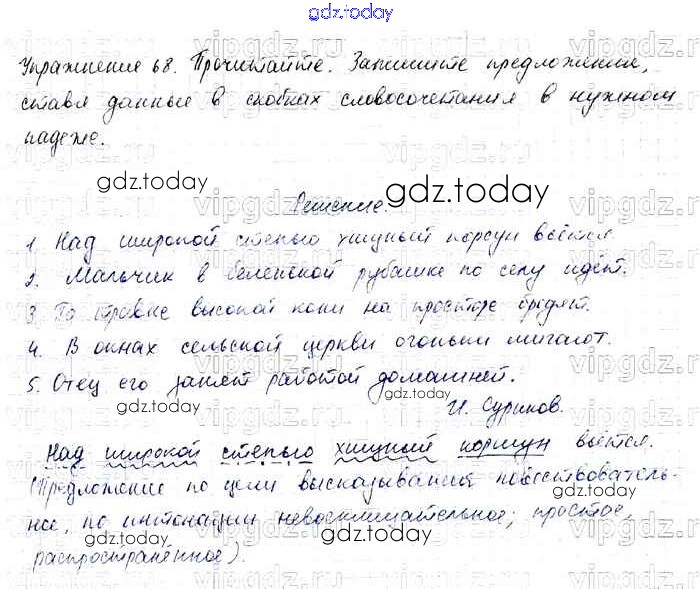 gdz.today
Упражнение 68. Прочитайте. Запишите предложения,
ставя данные в скобках словосочетания в нужном
падеже.
gdz.today
gdz.today
Решение.
1. Над широкой степью хищный корсун вьётся.
2. Мальчик в беленькой рубашке по селу идёт.
3. По травке высокой кони на просторе бродят.
4. В окнах сельской церкви огоньки мигают.
5. Отец его занят работой домашней.
gdz.today
gdz.today
И. Суриков.
Над широкой степью хищный коршун вьётся.
(Предложение по цели высказывания повествователь-
ное, по интонации невосклицательное; простое,
распространённое).
gdz.today
gdz.today